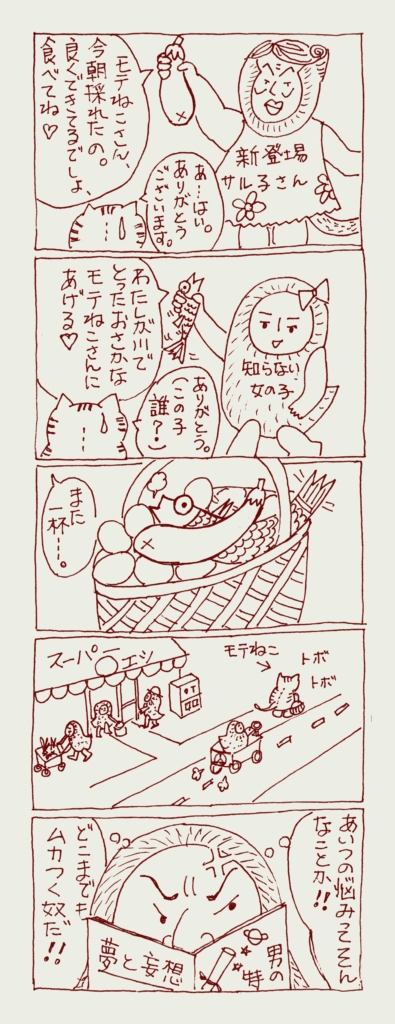 モテねこさん、
今朝採れたの。
良くできてるでしょ、
食べてね♡
あ…はい。
ありがとう
ございます。
新登場
サル子さん
わたしが川で
とったおさかな
モテねこさんに
あげる♡
ありがとう。
(この子
誰?)
知らない
女の子
また
一杯…。
スーパーエツ
モテねこ
トボ
トボ
あいつの悩みってそん
なことか!!
どこまでも
ムカつく奴だ!!
男の
特
夢と妄想